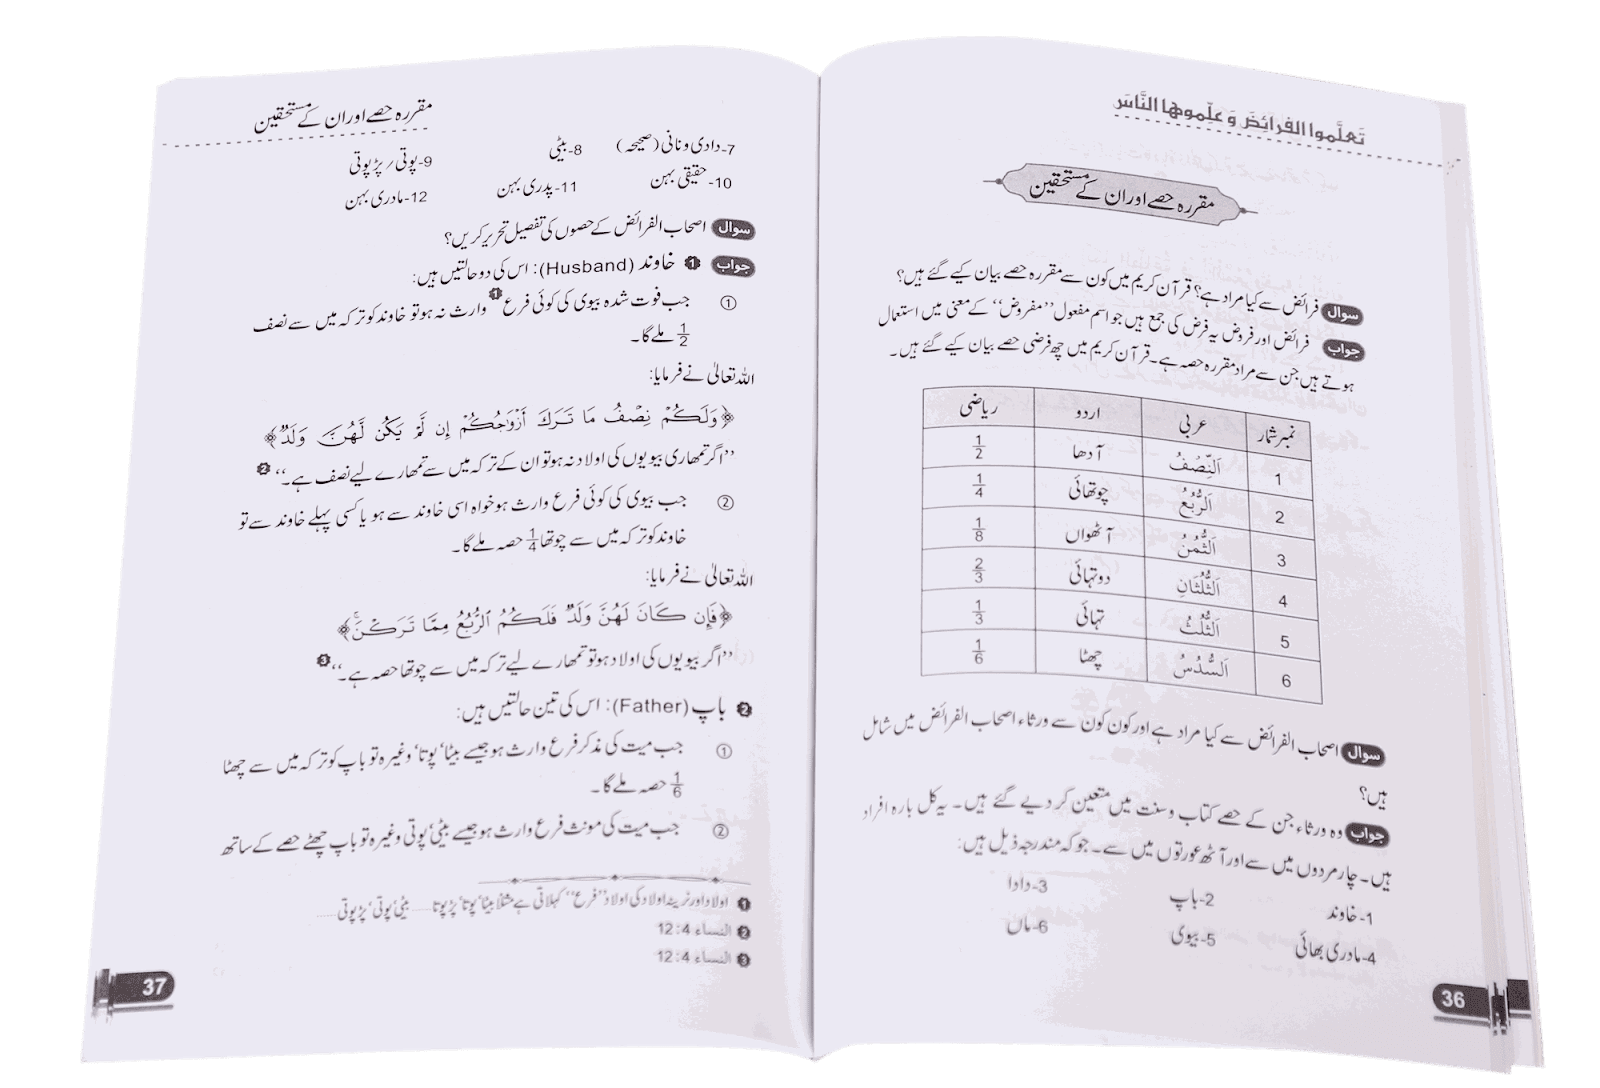 تَعلَّموا الفرائِضَ وَ علِّموها النَّاسَ
مقررہ حصے اور ان کے مستحقین
سوال فرائض سے کیا مراد ہے؟ قرآن کریم میں کون سے مقررہ حصے بیان کیے گئے ہیں؟
جواب فرائض اور فروض یہ فرض کی جمع ہیں جو اسم مفعول ’’مفروض‘‘ کے معنی میں استعمال
ہوتے ہیں جن سے مراد مقررہ حصہ ہے۔ قرآن کریم میں چھ فرضی حصے بیان کیے گئے ہیں۔
نمبر شمار عربی اردو ریاضی
1 اَلنِّصْفُ آدھا 1/2
2 اَلرُّبُعُ چوتھائی 1/4
3 اَلثُّمُنُ آٹھواں 1/8
4 اَلثُّلُثَانِ دو تہائی 2/3
5 اَلثُّلُثُ تہائی 1/3
6 اَلسُّدُسُ چھٹا 1/6
سوال اصحاب الفرائض سے کیا مراد ہے اور کون کون سے ورثاء اصحاب الفرائض میں شامل
ہیں؟
جواب وہ ورثاء جن کے حصے کتاب و سنت میں متعین کر دیے گئے ہیں۔ یہ کل بارہ افراد
ہیں۔ چار مردوں میں سے اور آٹھ عورتوں میں سے۔ جو کہ مندرجہ ذیل ہیں:
1- خاوند 2- باپ 3- دادا
4- مادری بھائی 5- بیوی 6- ماں
36
مقررہ حصے اور ان کے مستحقین
7- دادی و نانی (صحیحہ) 8- بیٹی 9- پوتی / پڑپوتی
10- حقیقی بہن 11- پدری بہن 12- مادری بہن
سوال اصحاب الفرائض کے حصوں کی تفصیل تحریر کریں؟
جواب ❶ خاوند (Husband): اس کی دو حالتیں ہیں:
① جب فوت شدہ بیوی کی کوئی فرع❶ وارث نہ ہو تو خاوند کو ترکہ میں سے نصف
1/2 ملے گا۔
اللہ تعالیٰ نے فرمایا:
﴿وَلَكُمْ نِصْفُ مَا تَرَكَ أَزْوَاجُكُمْ إِن لَّمْ يَكُن لَّهُنَّ وَلَدٌ﴾
’’اگر تمھاری بیویوں کی اولاد نہ ہو تو ان کے ترکہ میں سے تمھارے لیے نصف ہے۔‘‘❷
② جب بیوی کی کوئی فرع وارث ہو خواہ اسی خاوند سے ہو یا کسی پہلے خاوند سے تو
خاوند کو ترکہ میں سے چوتھا 1/4 حصہ ملے گا۔
اللہ تعالیٰ نے فرمایا:
﴿فَإِن كَانَ لَهُنَّ وَلَدٌ فَلَكُمُ الرُّبُعُ مِمَّا تَرَكْنَ﴾
’’اگر بیویوں کی اولاد ہو تو تمھارے لیے ترکہ میں سے چوتھا حصہ ہے۔‘‘❸
❷ باپ (Father): اس کی تین حالتیں ہیں:
① جب میت کی مذکر فرع وارث ہو جیسے بیٹا‘ پوتا‘ وغیرہ تو باپ کو ترکہ میں سے چھٹا
1/6 حصہ ملے گا۔
② جب میت کی مونث فرع وارث ہو جیسے بیٹی‘ پوتی وغیرہ تو باپ چھٹے حصے کے ساتھ
❶ اولاد اور نرینہ اولاد کی اولاد ’’فرع‘‘ کہلاتی ہے مثلاً بیٹا‘ پوتا‘ پڑپوتا...... بیٹی‘ پوتی‘ پڑپوتی......
❷ النساء 4:12
❸ النساء 4:12
37